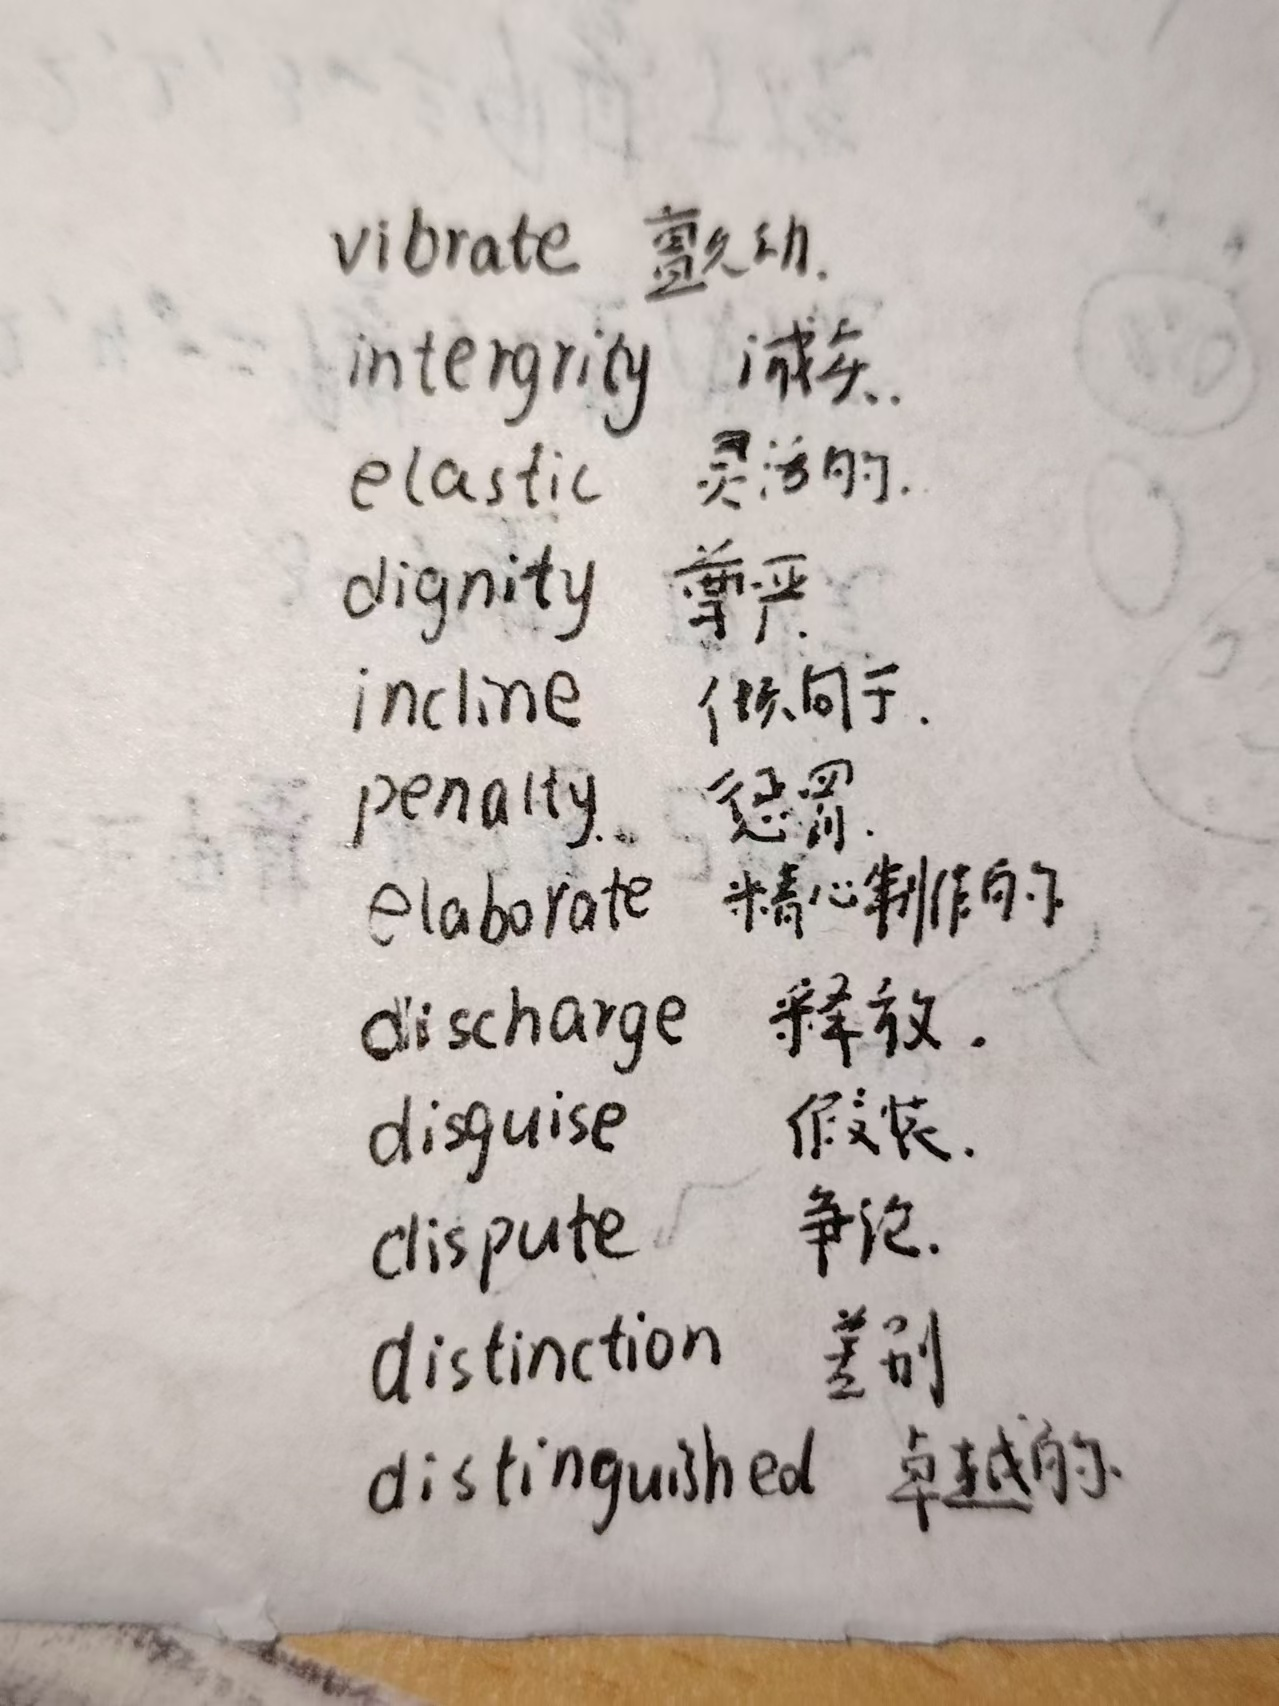 vibrate 颤动.
intergrity 诚实.
elastic 灵活的.
dignity 尊严.
incline 倾向于.
penalty 惩罚.
elaborate 精心制作的
discharge 释放.
disguise 假装.
dispute 争论.
distinction 差别
distinguished 卓越的.